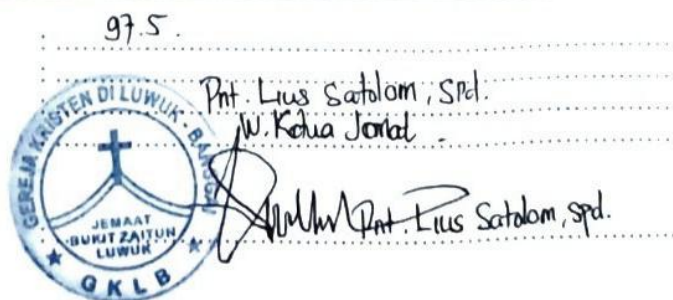 97.5.
Pnt. Lius Satolom, SPd.
W. Ketua Jemaat
Pnt. Lius Satolom, Spd.
GEREJA KRISTEN DI LUWUK - BANGGAI
JEMAAT
BUKIT ZAITUN
LUWUK
GKLB